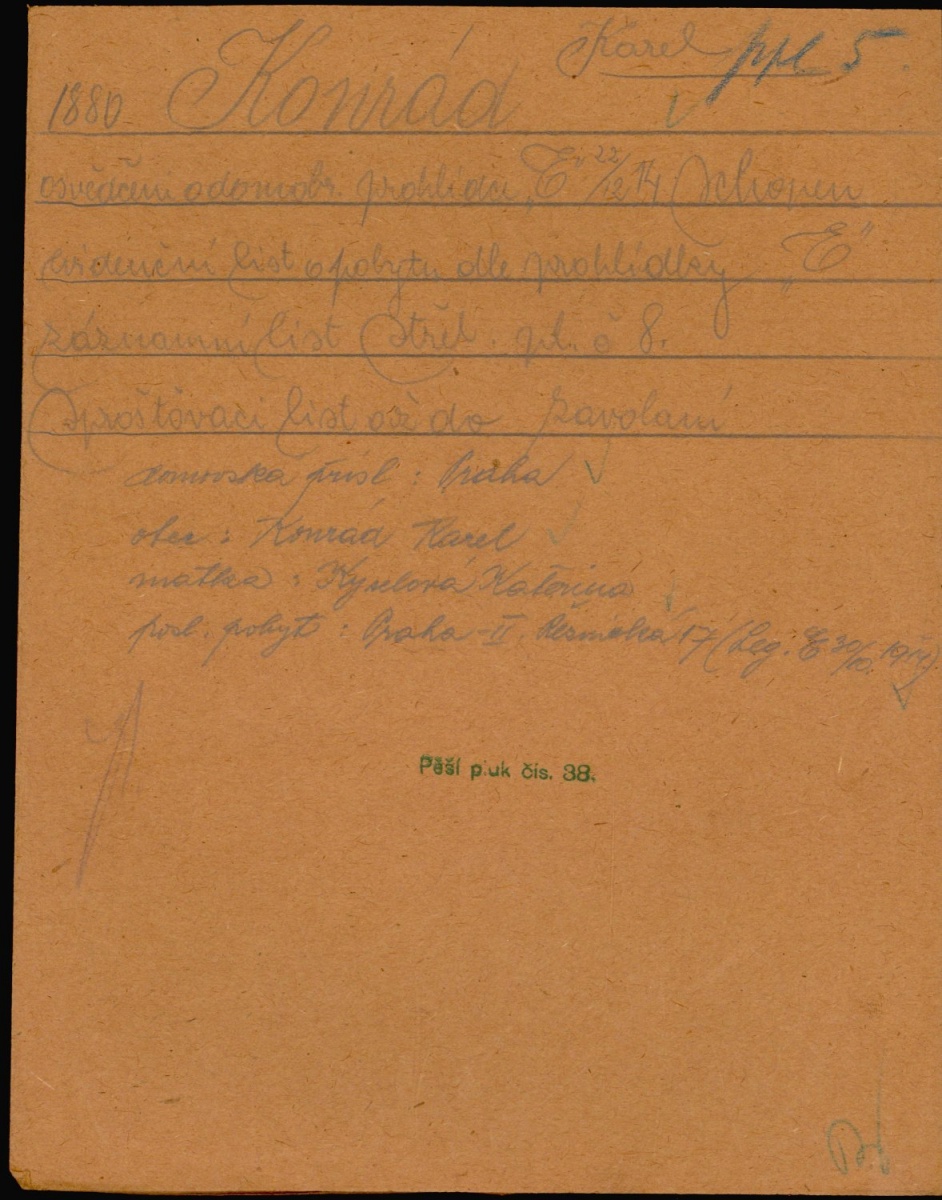 Karel ppl 5.
1880 Konrád
osvědčení o domobr. prohlídce „E" 22/12 14 Schopen
evidenční list o pobytu dle prohlídky „E"
záznamní list střel. pl. č 8.
Sprošťovací list až do zavolaní
domovská přísl : Praha
otec : Konrád Karel
matka : Kateřina
posl. pobyt : Praha - II. 17 (Leg. E 30/10. 1914).
Pěší pluk čís. 38.